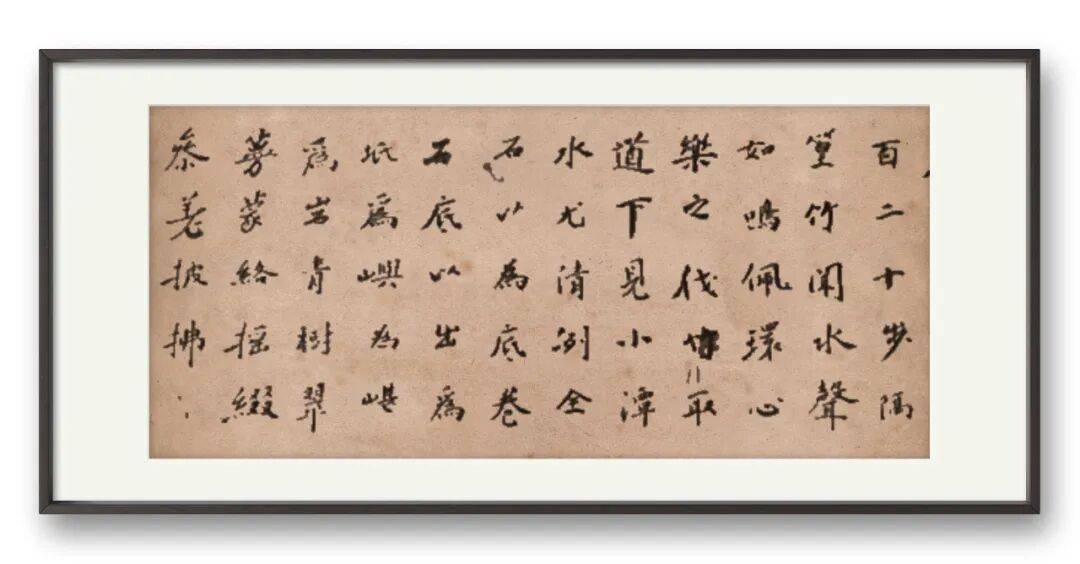 百二十步隔
篁竹闻水聲
如鳴佩環心
樂之伐取
道下見小潭
水尤清冽全
石以為底卷
石底以出爲
坻爲嶼為嵁
爲岩青樹翠
蔓蒙絡摇綴
參差披拂